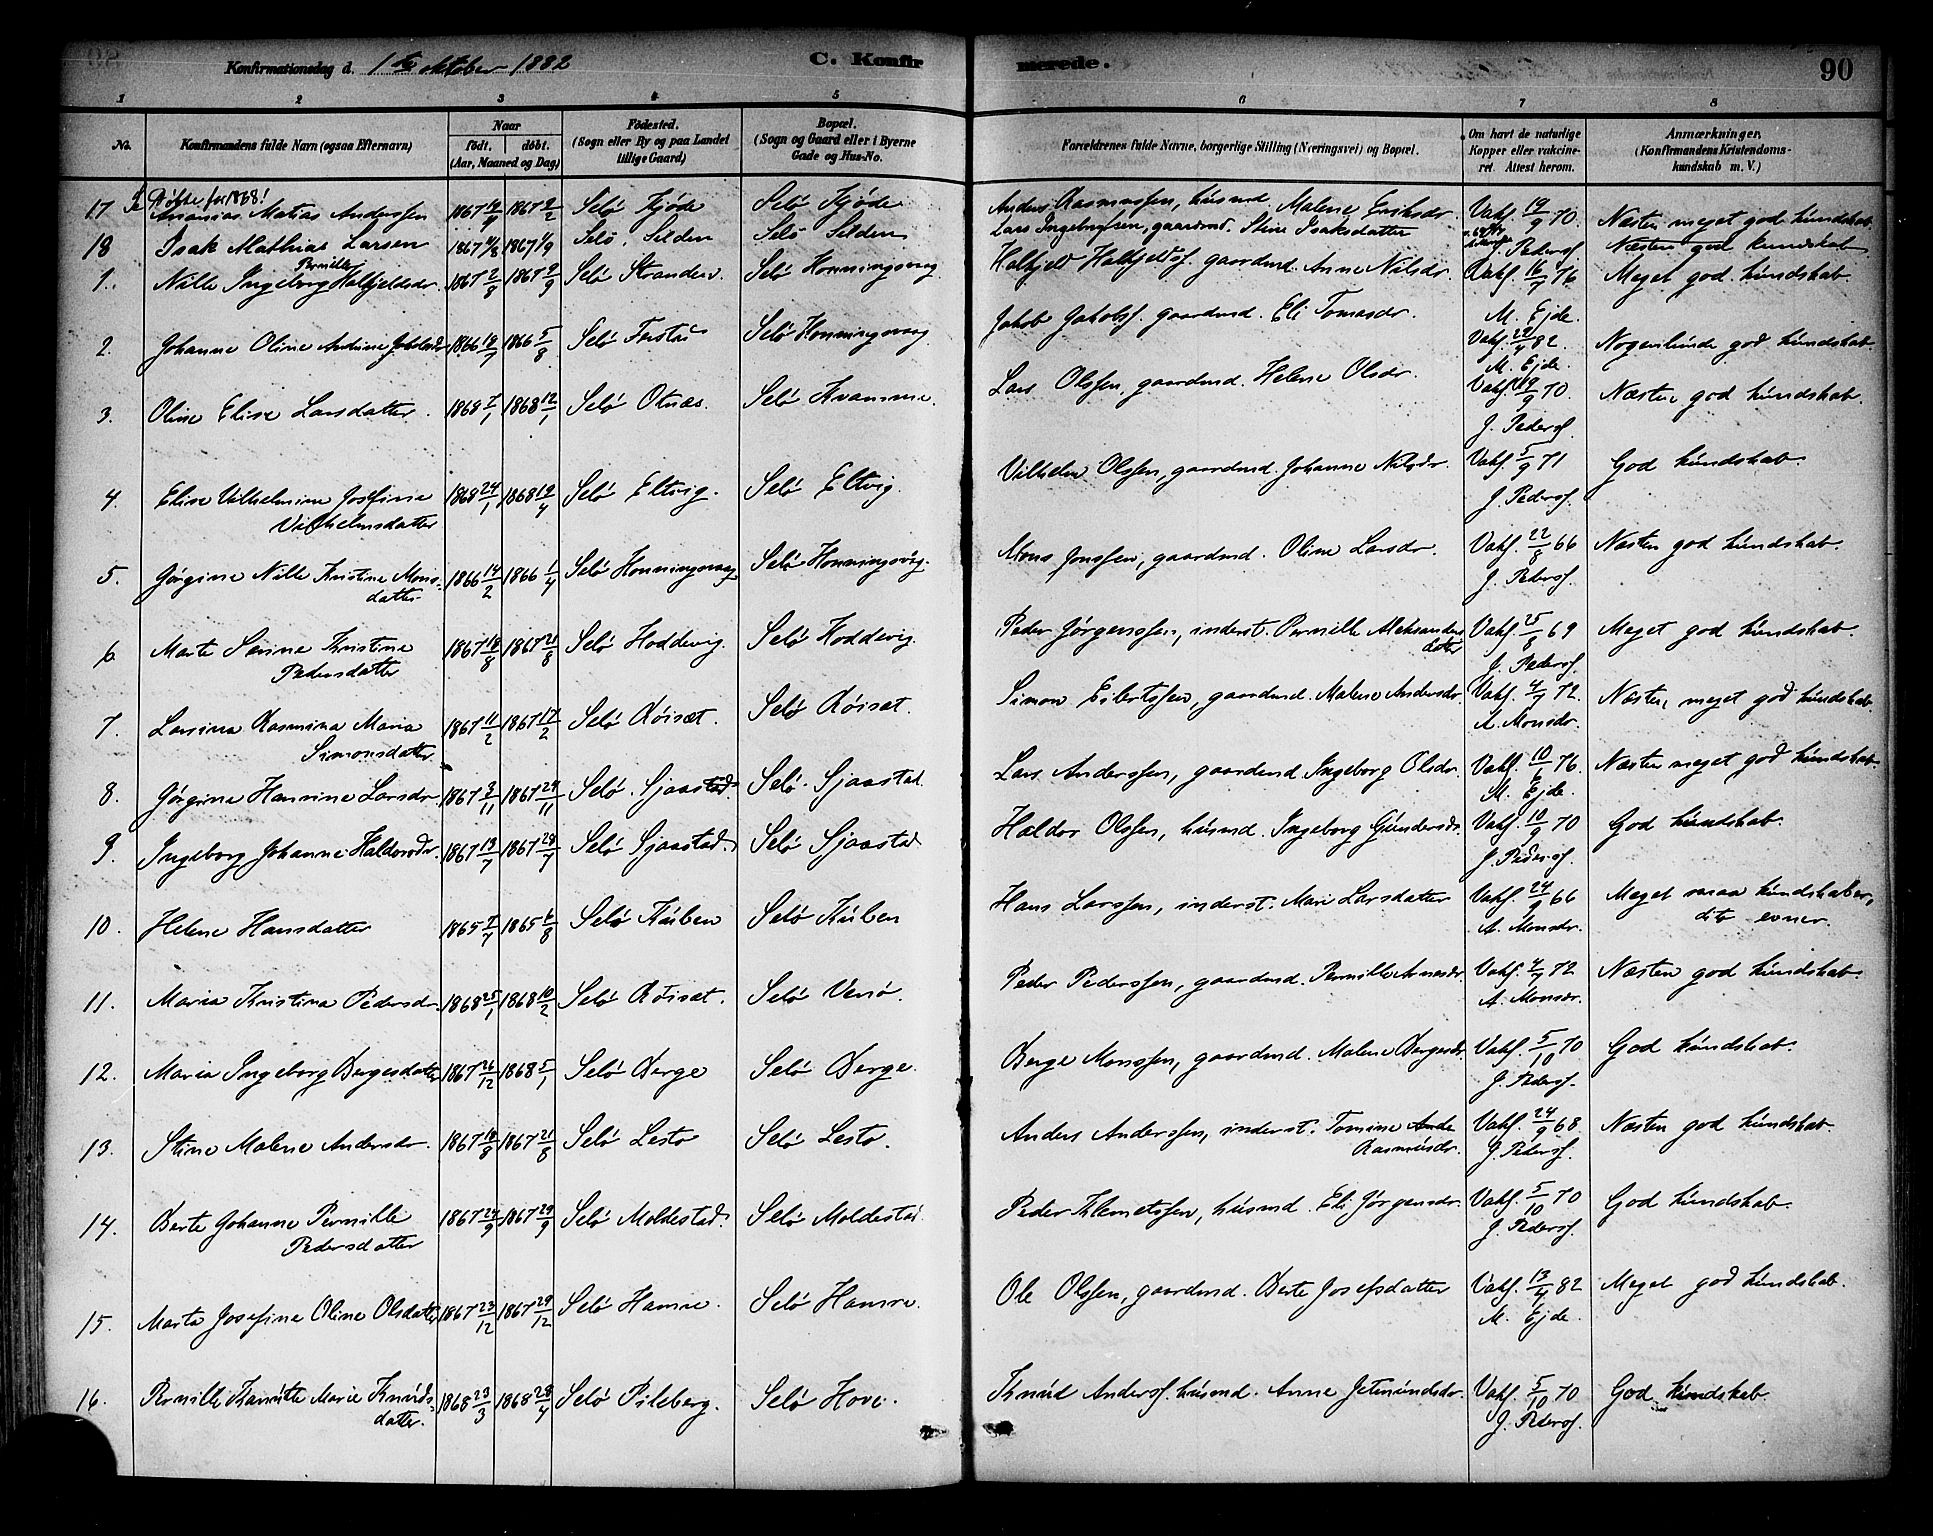 Konfirmationsdag d. 1ste oktober 1882
C. Konfirmerede.
90
1 2 3 4 5 6 7 8
No.
Konfirmandens fulde Navn (ogsaa Efternavn)
Naar
født. døbt.
(Aar, Maaned og Dag)
Fødested.
(Sogn eller By og paa Landet
tillige Gaard)
Bopæl.
(Sogn og Gaard eller i Byerne
Gade og Hus-No.
Forældrenes fulde Navne, borgerlige Stilling (Næringsvei) og Bopæl.
Om havt de naturlige
Kopper eller vakcine-
ret. Attest herom.
Anmærkninger.
(Konfirmandens Kristendoms-
kundskab m. V.)
for 1868!
17 Ananias Matias Anderssen 1867 1867 Selö Kjöde Selö Kjöde Anders Rasmussen, husmd. Malene Eriksdr. Vakf. 19/9 70 Næsten meget god kundskab
18 Isak Mathias Larsen 1867 1867 Selö. Selden Selö Selden Lars Ingebrigtsen, gaardmd. Stine Isaksdatter J. Pedersf. Næsten god kundskab
Pernille
1. Nille Ingeborg Halkjeldsdr. 1867 2/8 1867 2/9 Selö Strandew. Selö Honningsvaag Halkjeld Halkjeldsf. gaardmd. Anne Nilsdr. Vakf. 16/7 76 Meget god kundskab
M. Ejde.
2. Johanne Oline Antrine Jakobsdr 1866 1866 5/8 Selö Ferstad Selö Honningsvaag Jakob Jakobsf. gaardmd. Eli Tomasdr. Vakf. 22/4 82. Nogenlunde god kundskab.
M. Ejde.
3. Oline Elise Larsdatter. 1868 7/1 1868 12/1 Selö Otnæs. Selö Kvamme. Lars Olssen, gaardmd. Helene Olsdr. Vakf. 19/9 70. Næsten god kundskab.
J. Pedersf.
4. Elise Vilhelmine Josefine 1868 24/1 1868 19/4 Selö Eltvig. Selö Eltvig. Vilhelm Olssen, gaardmd. Johanne Nilsdr. Vakf. 5/9 71 God kundskab.
Vilhelmsdatter
J. Pedersf.
5. Jörgine Nille Kristine Mons- 1866 14/2 1866 1/4 Selö Honningsvaag Selö Honningsvåg. Mons Jonssen, gaardmd. Oline Larsdr. Vakf. 22/8 66 Næsten god kundskab.
datter
J. Pedersf.
6. Marte Serine Kristine 1867 18/8 1867 21/8 Selö Hoddevig. Selö Hoddevig. Peder Jörgenssen, inderst. Pernille Aleksanders Vakf. 25/8 69 Meget god kundskab.
Pedersdatter
datter
J. Pedersf.
7. Larsina Rasmina Maria 1867 11/2 1867 17/2 Selö Röiset. Selö Röiset. Simon Eibertssen, gaardmd. Malene Andersdr. Vakf. 4/7 72. Næsten meget god kundskab.
Simonsdatter.
A. Monsdr.
8. Jörgine Hansine Larsdr 1867 3/11 1867 24/11 Selö. Sjaastad Selö. Sjaastad Lars Anderssen, gaardmd. Ingeborg Olsdr. Vakf. 10/6 76. Næsten meget god kundskab.
M. Ejde.
9. Ingeborg Johanne Haldorsdr. 1867 19/7 1867 28/7 Selö Sjaastad. Selö Sjaastad Haldor Olssen, husmd. Ingeborg Gundersdr. Vakf. 10/9 70 God kundskab.
J. Pedersf.
10. Helene Hansdatter 1865 7/7 1865 6/8 Selö Kuben Selö Kuben Hans Larssen, inderst. Mari Larsdatter Vakf. 24/9 66 Meget smaa kundskaber,
A. Monsdr. dito evner.
11. Maria Kristina Pedersdr. 1868 25/1 1868 10/2 Selö Röiset. Selö Venö. Peder Pederssen, gaardmd. Pernille Arnesdr. Vakf. 4/7 72 Næsten god kundskab.
A. Monsdr.
12. Maria Ingeborg Bergesdatter 1867 26/12 1868 5/1 Selö Berge Selö Berge. Berge Monssen, gaardmd. Malene Bergesdr. Vakf. 5/10 70 God kundskab.
J. Pedersf.
13. Stine Malene Andersdr. 1867 18/8 1867 21/8 Selö Lestö Selö Lestö. Anders Anderssen, inderst. Tomine Ande Vakf. 24/9 68. Næsten god kundskab.
Rasmusdr. J. Pedersf.
14. Berte Johanne Pernille 1867 24/9 1867 29/9 Selö Moldestad. Selö Moldestad. Peder Klemetssen, husmd. Eli Jörgensdr. Vakf. 5/10 70 God kundskab.
Pedersdatter
J. Pedersf.
15. Marta Josefine Oline Olsdatter 1867 23/12 1867 29/12 Selö Hamre. Selö Hamre. Ole Olssen, gaardmd. Berte Josefsdatter Vakf. 13/4 82 Meget god kundskab.
M. Ejde.
16. Pernille Marie Knuds- 1868 23/3 1868 28/4 Selö Pileberg. Selö Hove. Knud Andersf. husmd. Anne Jetmundsdr. Vakf. 5/10 70 God kundskab.
datter.
J. Pedersf.